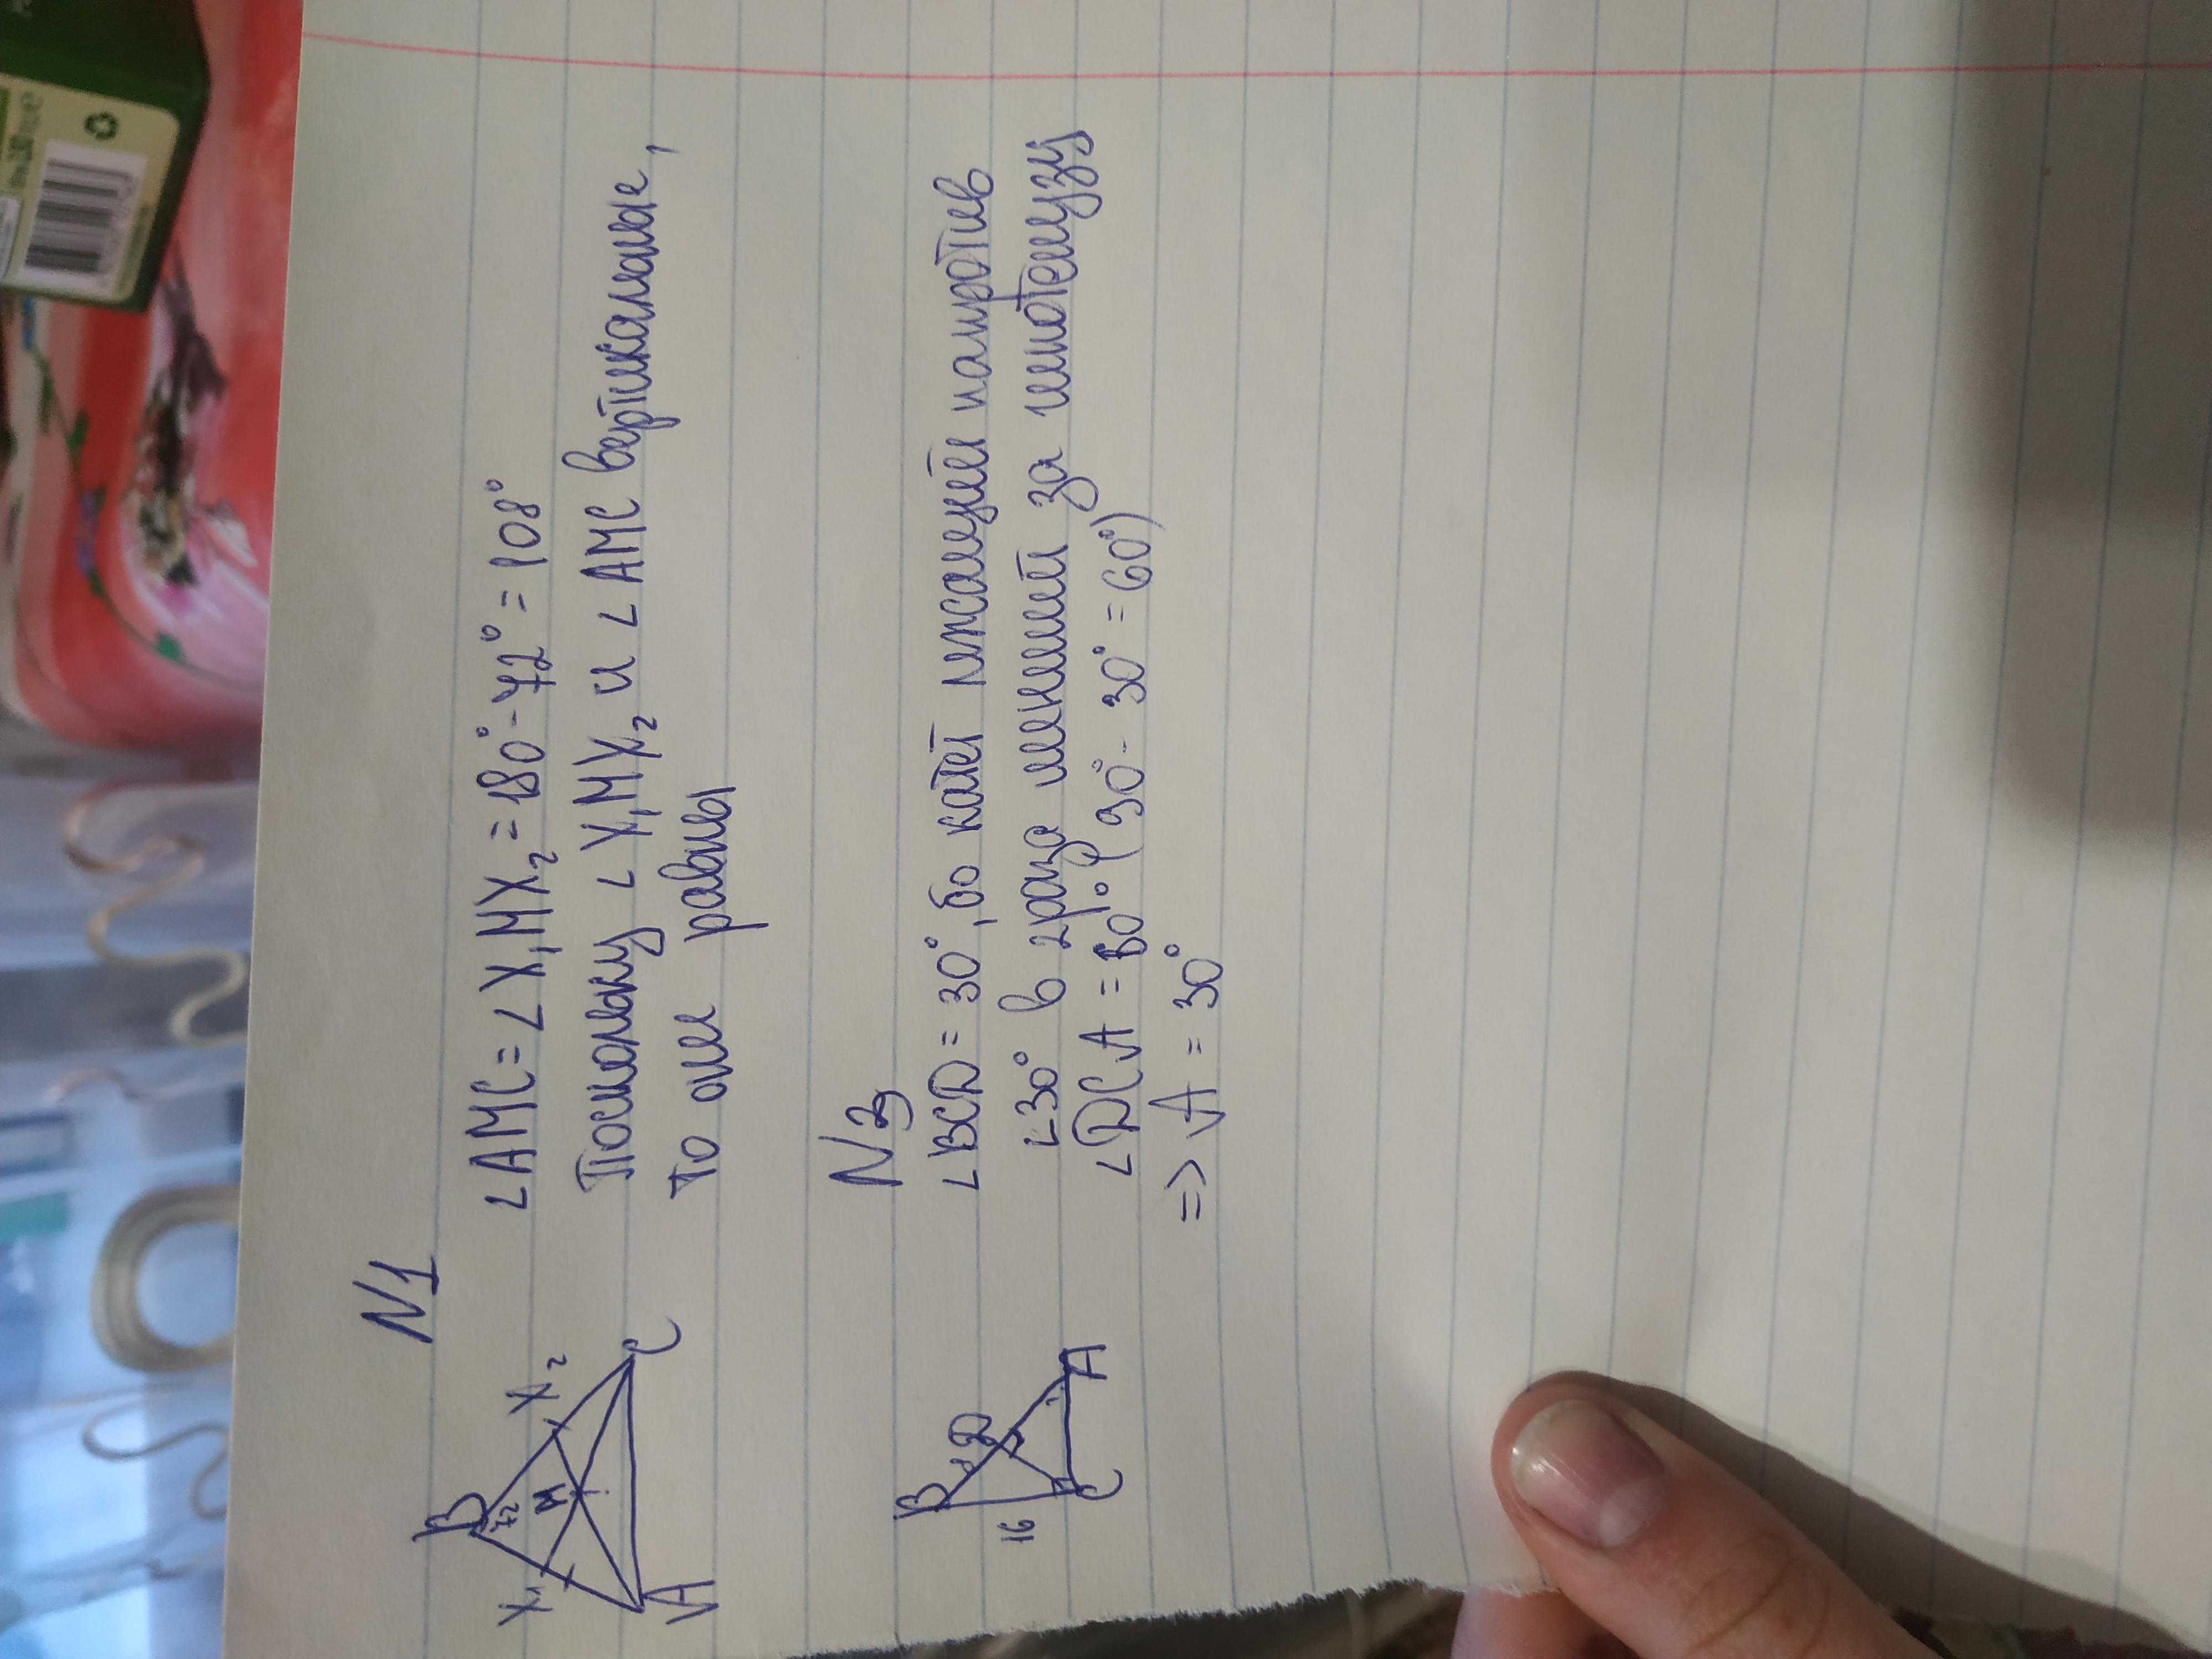 N1
B
72
X₁
X₂
M
A
C
∠AMC = ∠X₁MX₂ = 180° - 72° = 108°
Поскольку ∠X₁MX₂ и ∠AMC вертикальные,
То они равны
N3
B
8
D
16
C
A
∠BCD = 30°, бо катет лежащий напротив
∠30° в 2 раза менший за гипотенузу
∠DCA = 60° (90° - 30° = 60°)
=> A = 30°